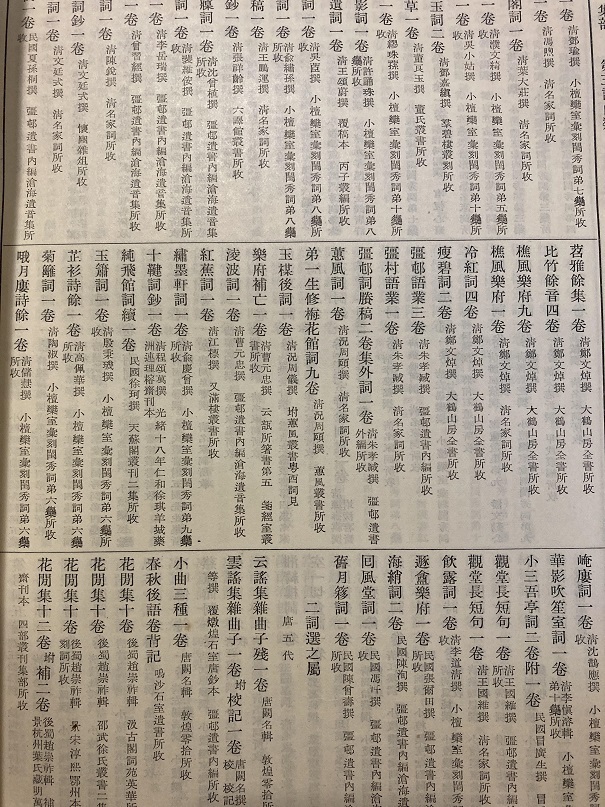 集部
一卷 清鄧瑜撰 小檀欒室彙刻閨秀詞第七集所收
詞一卷 清馮煦撰 清名家詞所收
閣詞一卷 清葉大莊撰 清名家詞所收
玉詞二卷 清鄧嘉縝撰 羣碧樓叢刻所收
草一卷 清董貞玉撰 董氏叢書所收
一卷 清繆珠蓀撰 小檀欒室彙刻閨秀詞第十集所收
影詞一卷 清許誦珠撰 小檀欒室彙刻閨秀詞第八集所收
遺詞一卷 清王頌蔚撰 覆稿本 丙子叢編所收
詞一卷 清吳茝撰 小檀欒室彙刻閨秀詞第八集所收
一卷 清俞繡孫撰 小檀欒室彙刻閨秀詞第八集所收
稿一卷 清王鵬運撰 清名家詞所收
鈔一卷 清張祥齡撰 六譯館叢書所收
詞一卷 清沈曾植撰 彊邨遺書內編滄海遺音集所收
一卷 清裴維侒撰 彊邨遺書內編滄海遺音集所收
一卷 清李岳瑞撰 彊邨遺書內編滄海遺音集所收
一卷 清曾習經撰 彊邨遺書內編滄海遺音集所收
詞一卷 清陳銳撰 清名家詞所收
一卷 清文廷式撰 懷豳雜俎所收
詞一卷 清文廷式撰 清名家詞所收
一卷 民國夏孫桐撰 彊邨遺書內編滄海遺音集所收
苕雅餘集一卷 清鄭文焯撰 大鶴山房全書所收
比竹餘音四卷 清鄭文焯撰 大鶴山房全書所收
樵風樂府九卷 清鄭文焯撰 大鶴山房全書所收
樵風樂府一卷 清鄭文焯撰 清名家詞所收
冷紅詞四卷 清鄭文焯撰 大鶴山房全書所收
瘦碧詞二卷 清鄭文焯撰 大鶴山房全書所收
彊邨語業三卷 清朱孝臧撰 彊邨遺書內編所收
彊村語業一卷 清朱孝臧撰 清名家詞所收
彊邨詞賸稿二卷集外詞一卷 清朱孝臧撰 彊邨遺書外編所收
蕙風詞一卷 清況周頤撰 清名家詞所收
弟一生修梅花館詞九卷 清況周頤撰 蕙風叢書所收
玉楳後詞一卷 清況周儀撰 坿蕙風叢書粵西詞見
樂府補亡一卷 清曹元忠撰 云瓻所箸書第五 箋經室叢書所收
淩波詞一卷 清曹元忠撰 彊邨遺書內編滄海遺音集所收
紅蕉詞一卷 清江標撰 又滿樓叢書所收
繡墨軒詞一卷 清俞慶曾撰 小檀欒室彙刻閨秀詞第九集所收
十鞬詞鈔一卷 清程頌萬撰 光緒十八年仁和徐琪羊城藥洲連理榕齋刊本
純飛館詞續一卷 民國徐珂撰 天蘇閣叢刊二集所收
玉簫詞一卷 清殷秉璣撰 小檀欒室彙刻閨秀詞第六集所收
芷衫詩餘一卷 清高佩華撰 小檀欒室彙刻閨秀詞第六集所收
菊籬詞一卷 清陶淑撰 小檀欒室彙刻閨秀詞第六集所收
哦月廔詩餘一卷 清儲慧撰 小檀欒室彙刻閨秀詞第六集所收
崦廔詞一卷 清沈鵲應撰 小檀欒室彙刻
華影吹笙室詞一卷 清李愼溶輯 小檀欒室彙刻閨秀詞第十集所收
小三吾亭詞二卷附一卷 民國冒廣生撰 冒
觀堂長短句一卷 清王國維撰 彊邨遺書內編滄海遺音集所收
觀堂長短句一卷 清王國維撰 清名家詞所收
飲露詞一卷 清李道清撰 小檀欒室彙刻
遯盦樂府一卷 民國張爾田撰 彊邨遺書內編滄海遺
海綃詞二卷 民國陳洵撰 彊邨遺書內編滄海遺音
同風堂詞一卷 民國馮幵撰 彊邨遺書內編滄海遺
舊月簃詞一卷 民國陳曾壽撰 彊邨遺書內編滄
二詞選之屬
唐五代
云謠集雜曲子殘一卷 唐闕名輯 敦煌零拾所
雲謠集雜曲子一卷坿校記一卷 唐闕名撰 校記
等撰 覆燉煌石室唐鈔本 彊邨遺書內編所收
小曲三種一卷 唐闕名輯 敦煌零拾所收
春秋後語卷背記 鳴沙石室遺書所收
花閒集十卷 後蜀趙崇祚輯 汲古閣詞苑英華所
花閒集十卷 後蜀趙崇祚輯 邵武徐氏叢書二集
花閒集十卷 後蜀趙崇祚輯 景宋淳熙鄂州本
刻詞所收
花閒集十二卷坿補二卷 後蜀趙崇祚輯 補
景杭州葉氏藏明萬
齋刊本 四部叢刊集部所收